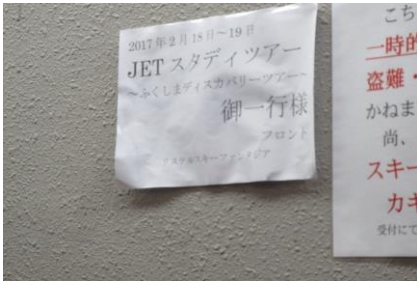 2017年2月18日〜19日
JETスタディツアー
〜ふくしまディスカバリーツアー〜
御一行様
フロント
リステルスキーファンタジア
こち
一時的
盗難・
かねま
尚、
スキー
カギ
受付にて